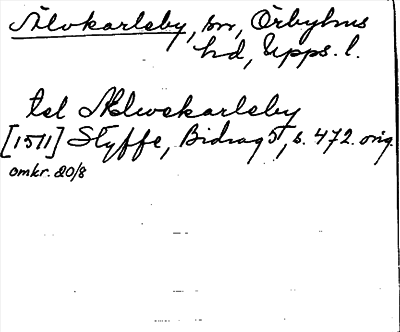 Älvkarleby, sn, Örbyhus
hd, Upps. l.
tel Ælwekarleby
[1511] Styffe, Bidrag 5, s. 472. orig.
omkr. 20/8